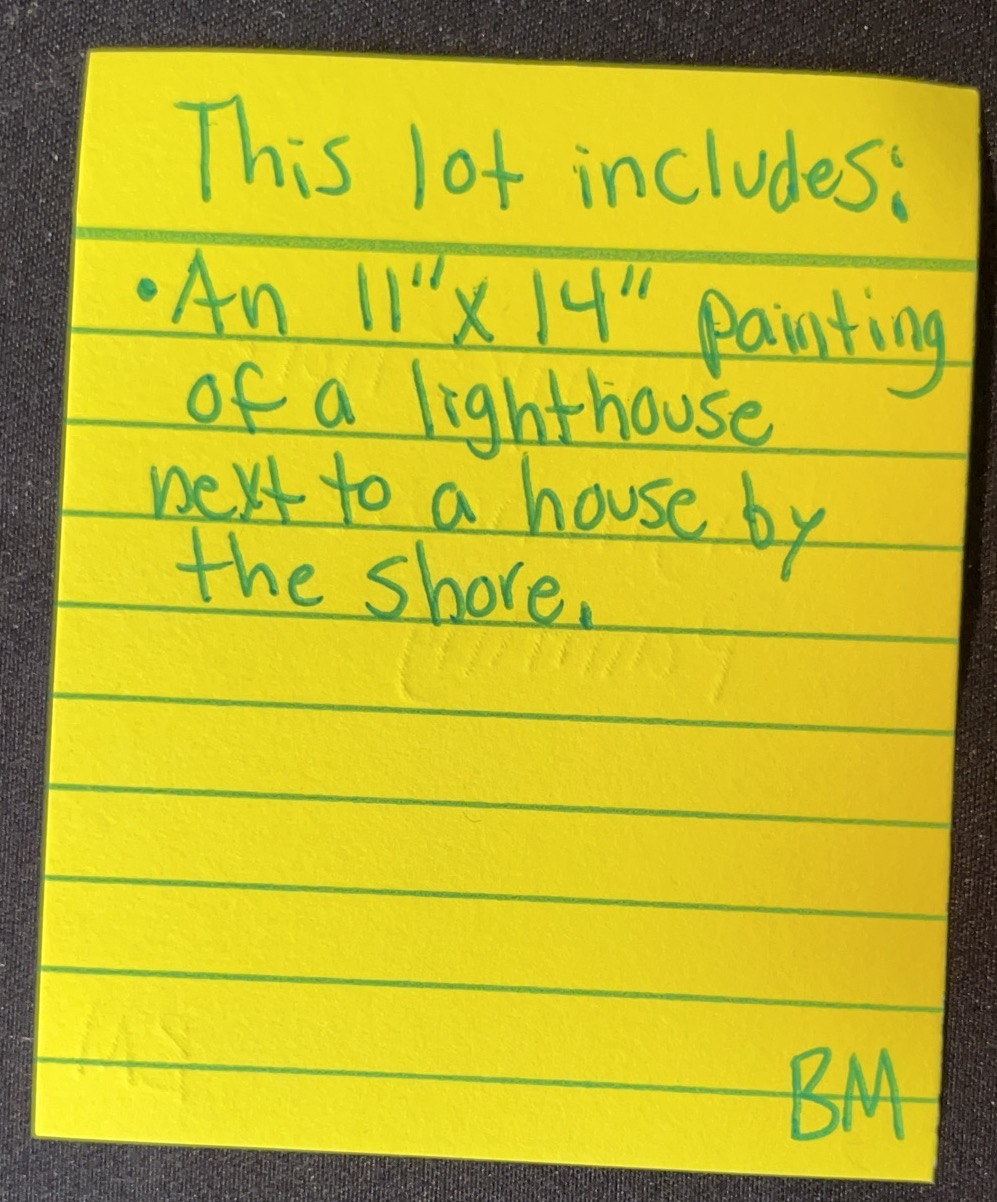 This lot includes:
• An 11" x 14" painting
of a lighthouse
next to a house by
the shore.
BM